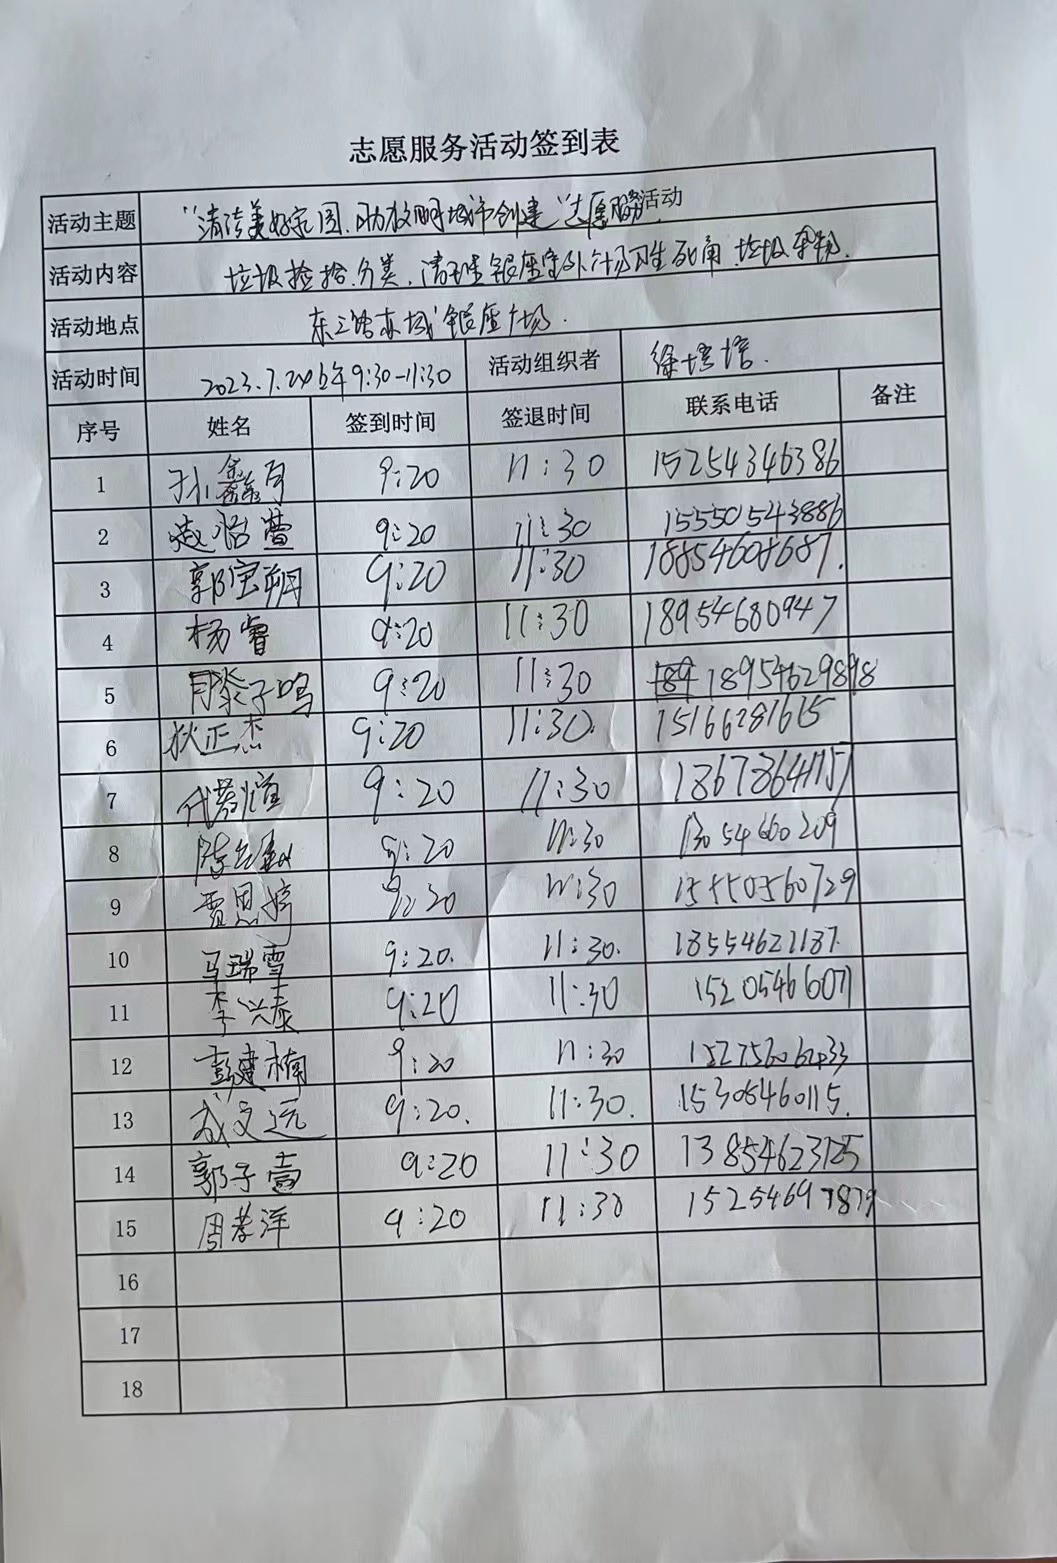 志愿服务活动签到表
活动主题 "清洁美好家园、助力文明城市创建"志愿服务活动
活动内容 垃圾捡拾、分类、清理银座室外广场卫生死角、垃圾杂物.
活动地点 东三路东城银座广场.
活动时间 2023.7.24 上午9:30-11:30 活动组织者 徐培培.
序号 姓名 签到时间 签退时间 联系电话 备注
1 孙鑫月 9:20 11:30 15254346386
2 9:20 11:30 15550543886
3 郭宝朔 9:20 11:30 18854608687.
4 杨睿 9:20 11:30 18954680947
5 子鸣 9:20 11:30 18954629898
6 狄正杰 9:20 11:30. 15166281615
7 9:20 11:30 18678641151
8 9:20 11:30 13054660209
9 贾思婷 9:20 11:30 15550560729
10 马瑞雪 9:20. 11:30. 18554621187.
11 李兴泰 9:20 11:30 15205466071
12 彭建楠 9:20 11:30
13 成文远 9:20. 11:30. 15305460115.
14 郭子壹 9:20 11:30 13854623125
15 周孝洋 9:20 11:30 15254697879
16
17
18